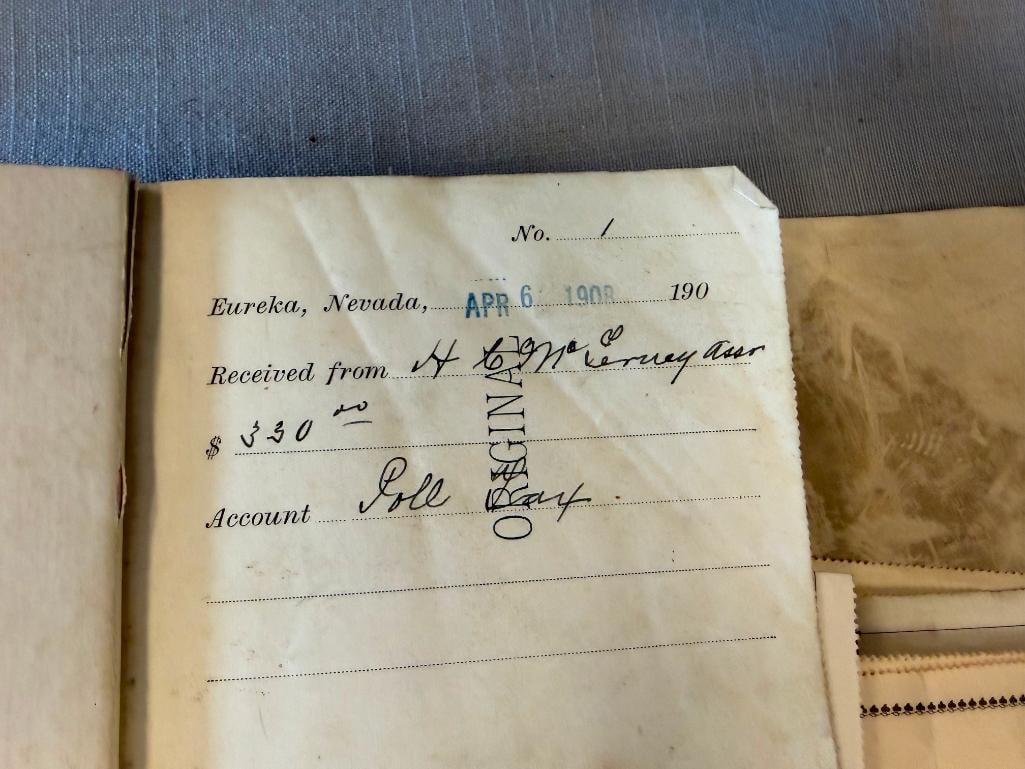 No. 1
Eureka, Nevada, APR 6 1908 190
Received from H C Mc Terney Assr
$ 330 00
Account Poll Tax
ORIGINAL